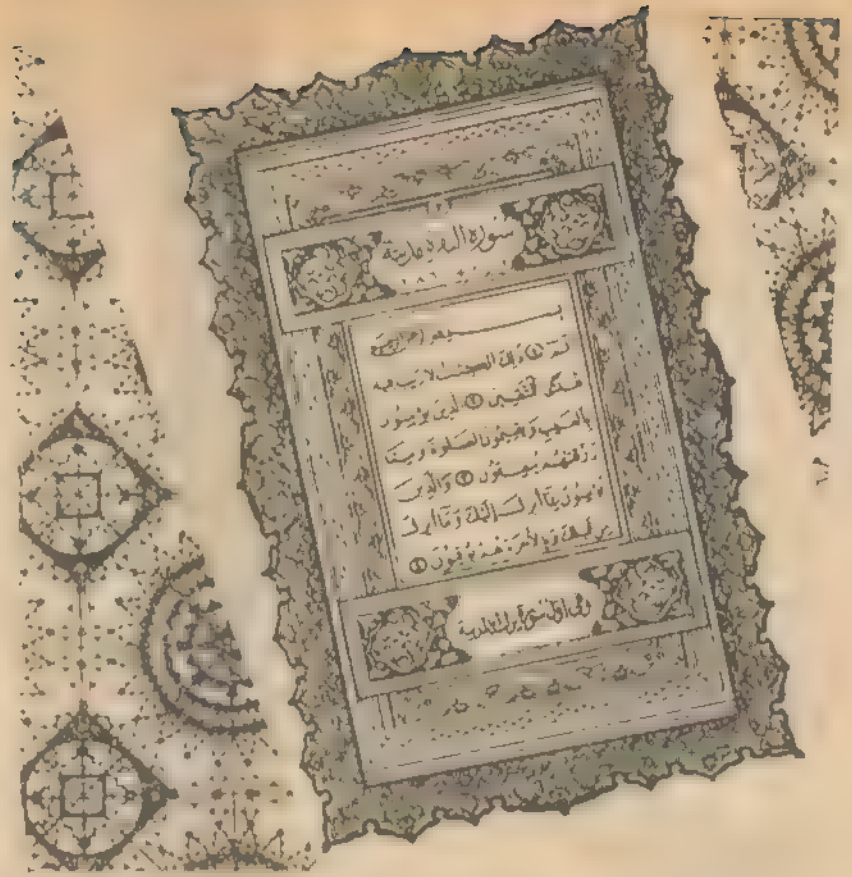 سورة البقرة مدنية
بسم
الم ① ذلك الكتب لا ريب فيه
هدى للمتقين ② الذين يؤمنون
بالغيب ويقيمون الصلوة ومما
رزقنهم ينفقون ③ والذين
يؤمنون بما أنزل إليك وما أنزل
من قبلك وبالأخرة هم يوقنون ④